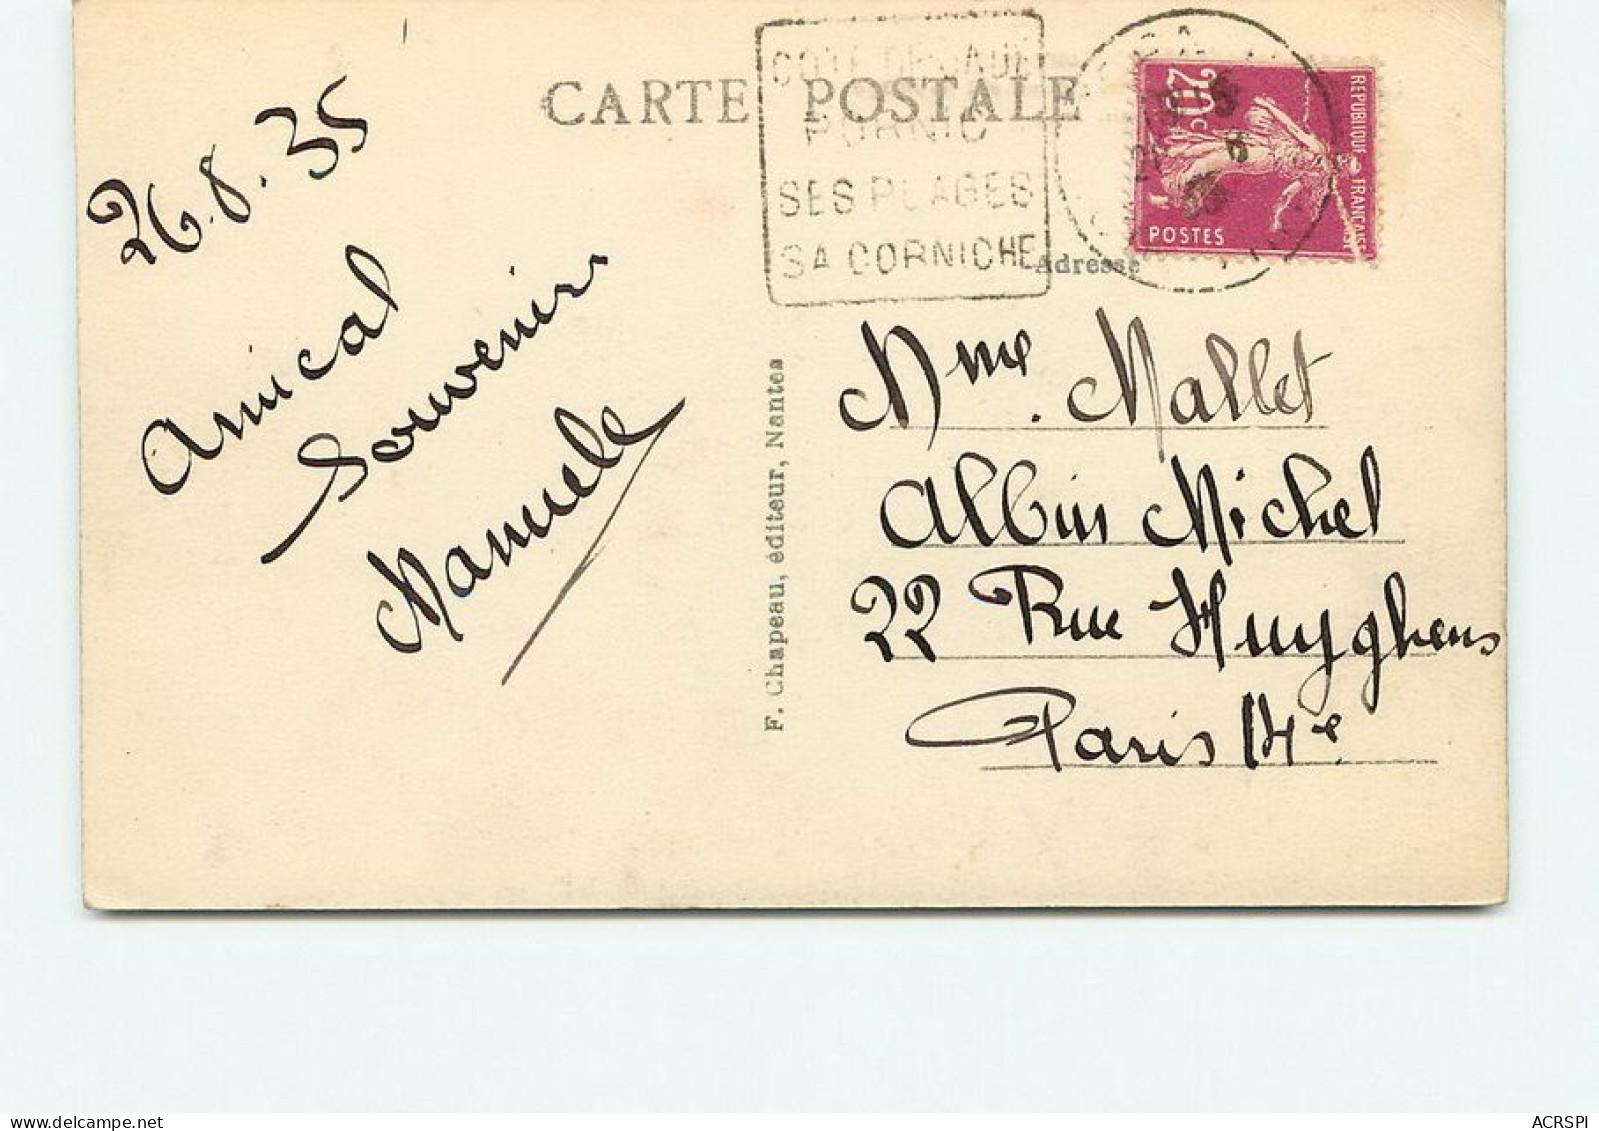 CARTE POSTALE
CÔTE DE JADE
PORNIC
SES PLAGES
SA CORNICHE
20c
REPUBLIQUE FRANCAISE
POSTES
26.8.35
Amical
Souvenir
Manuele
F. Chapeau, éditeur, Nantes
Adresse
Mme. Mallet
Albin Michel
22 Rue Huyghens
Paris 14e
ACRSPI